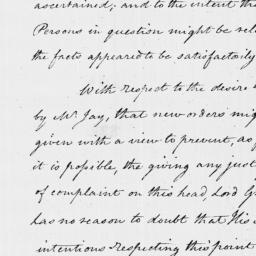 ascertained; and to the intent the
Persons in question might be rel
the facts appeared to be satisfactorily
With respect to the desire
by Mr. Jay, that new orders mig
given with a view to prevent, as f
it is possible, the giving any just
of complaint on this head, Lord G
has no reason to doubt that His
intentions respecting this point